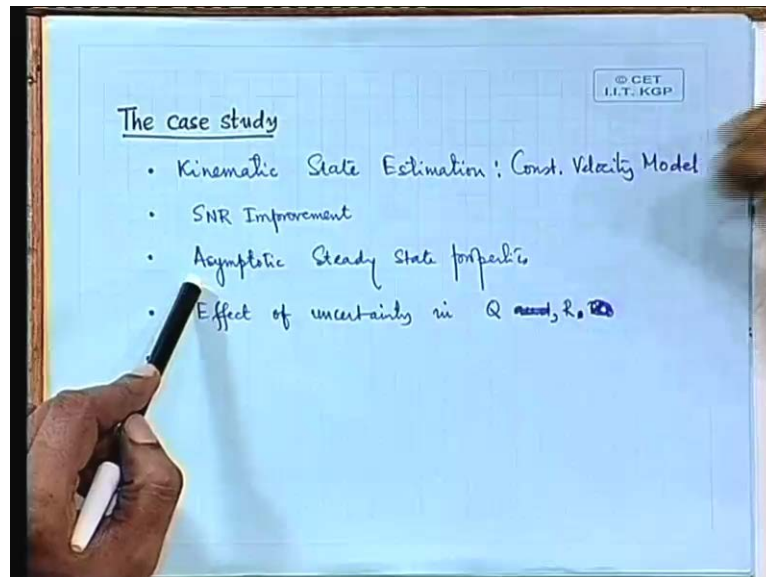 © CET
I.I.T. KGP
The case study
• Kinematic State Estimation : Const. Velocity Model
• SNR Improvement
• Asymptotic Steady State properties
• Effect of uncertainty in Q , R.